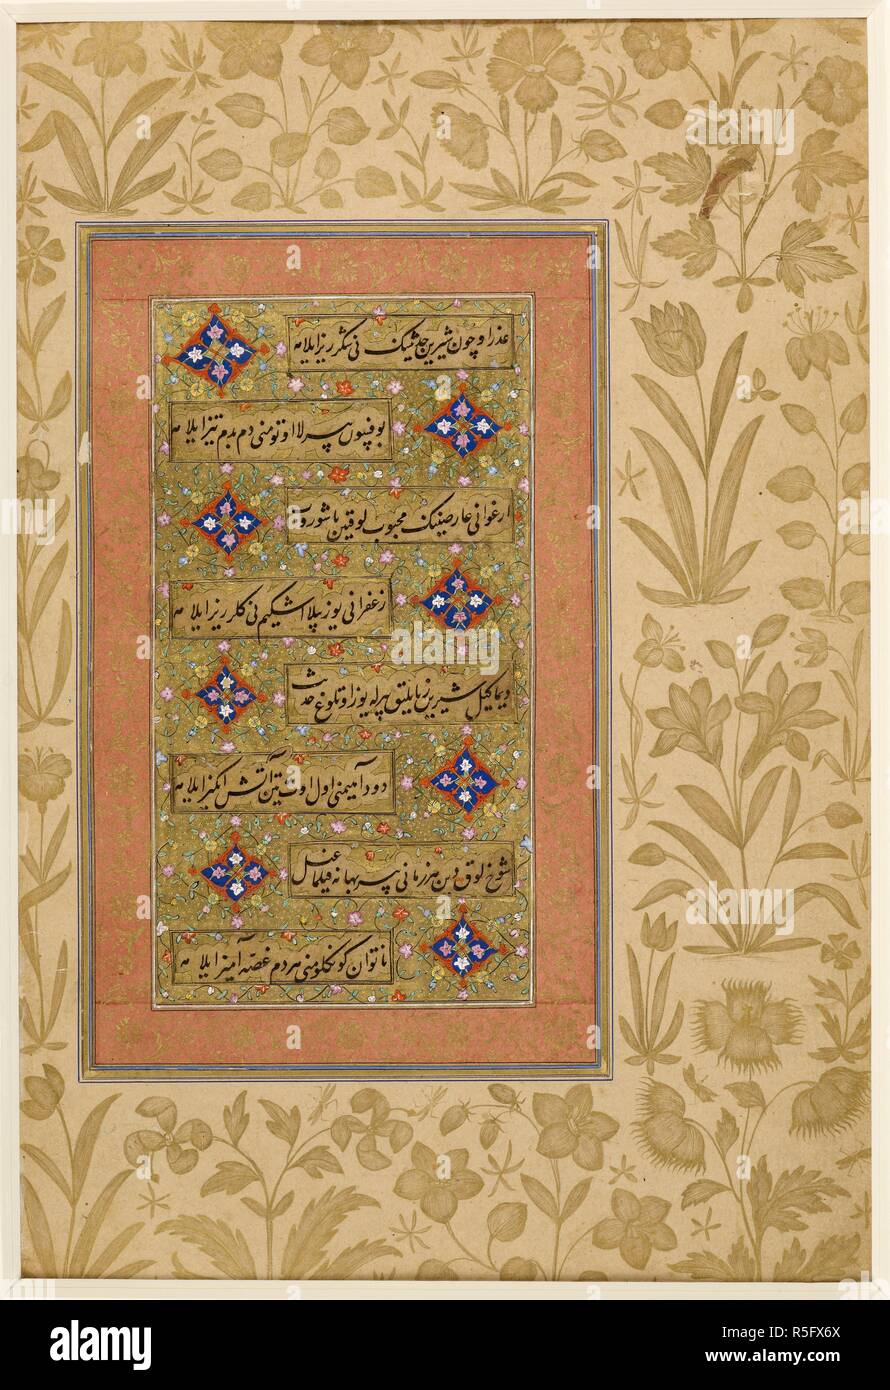 عذرا و چون شیرین حدیثینک نی شکر ریز ایلامه
بیرلا اوتومنی دم بدم تیز ایلامه
ارغوانی عارضینک محبوب لوقتین یاشوروب
زعفرانی یوز بیلا اشکیم نی کلریز ایلامه
دیماکیل شیرین زبانلیق بیرله یوز اوتلوغ حدیث
دود آهیمنی اول اوت تین آتش انکیز ایلامه
شوخ لوق دین هر زمانی بیر بهانه قیلماغیل
ناتوان کونکلومنی هر دم غصه آمیز ایلامه
alamy
Image ID: R5FX6X
www.alamy.com